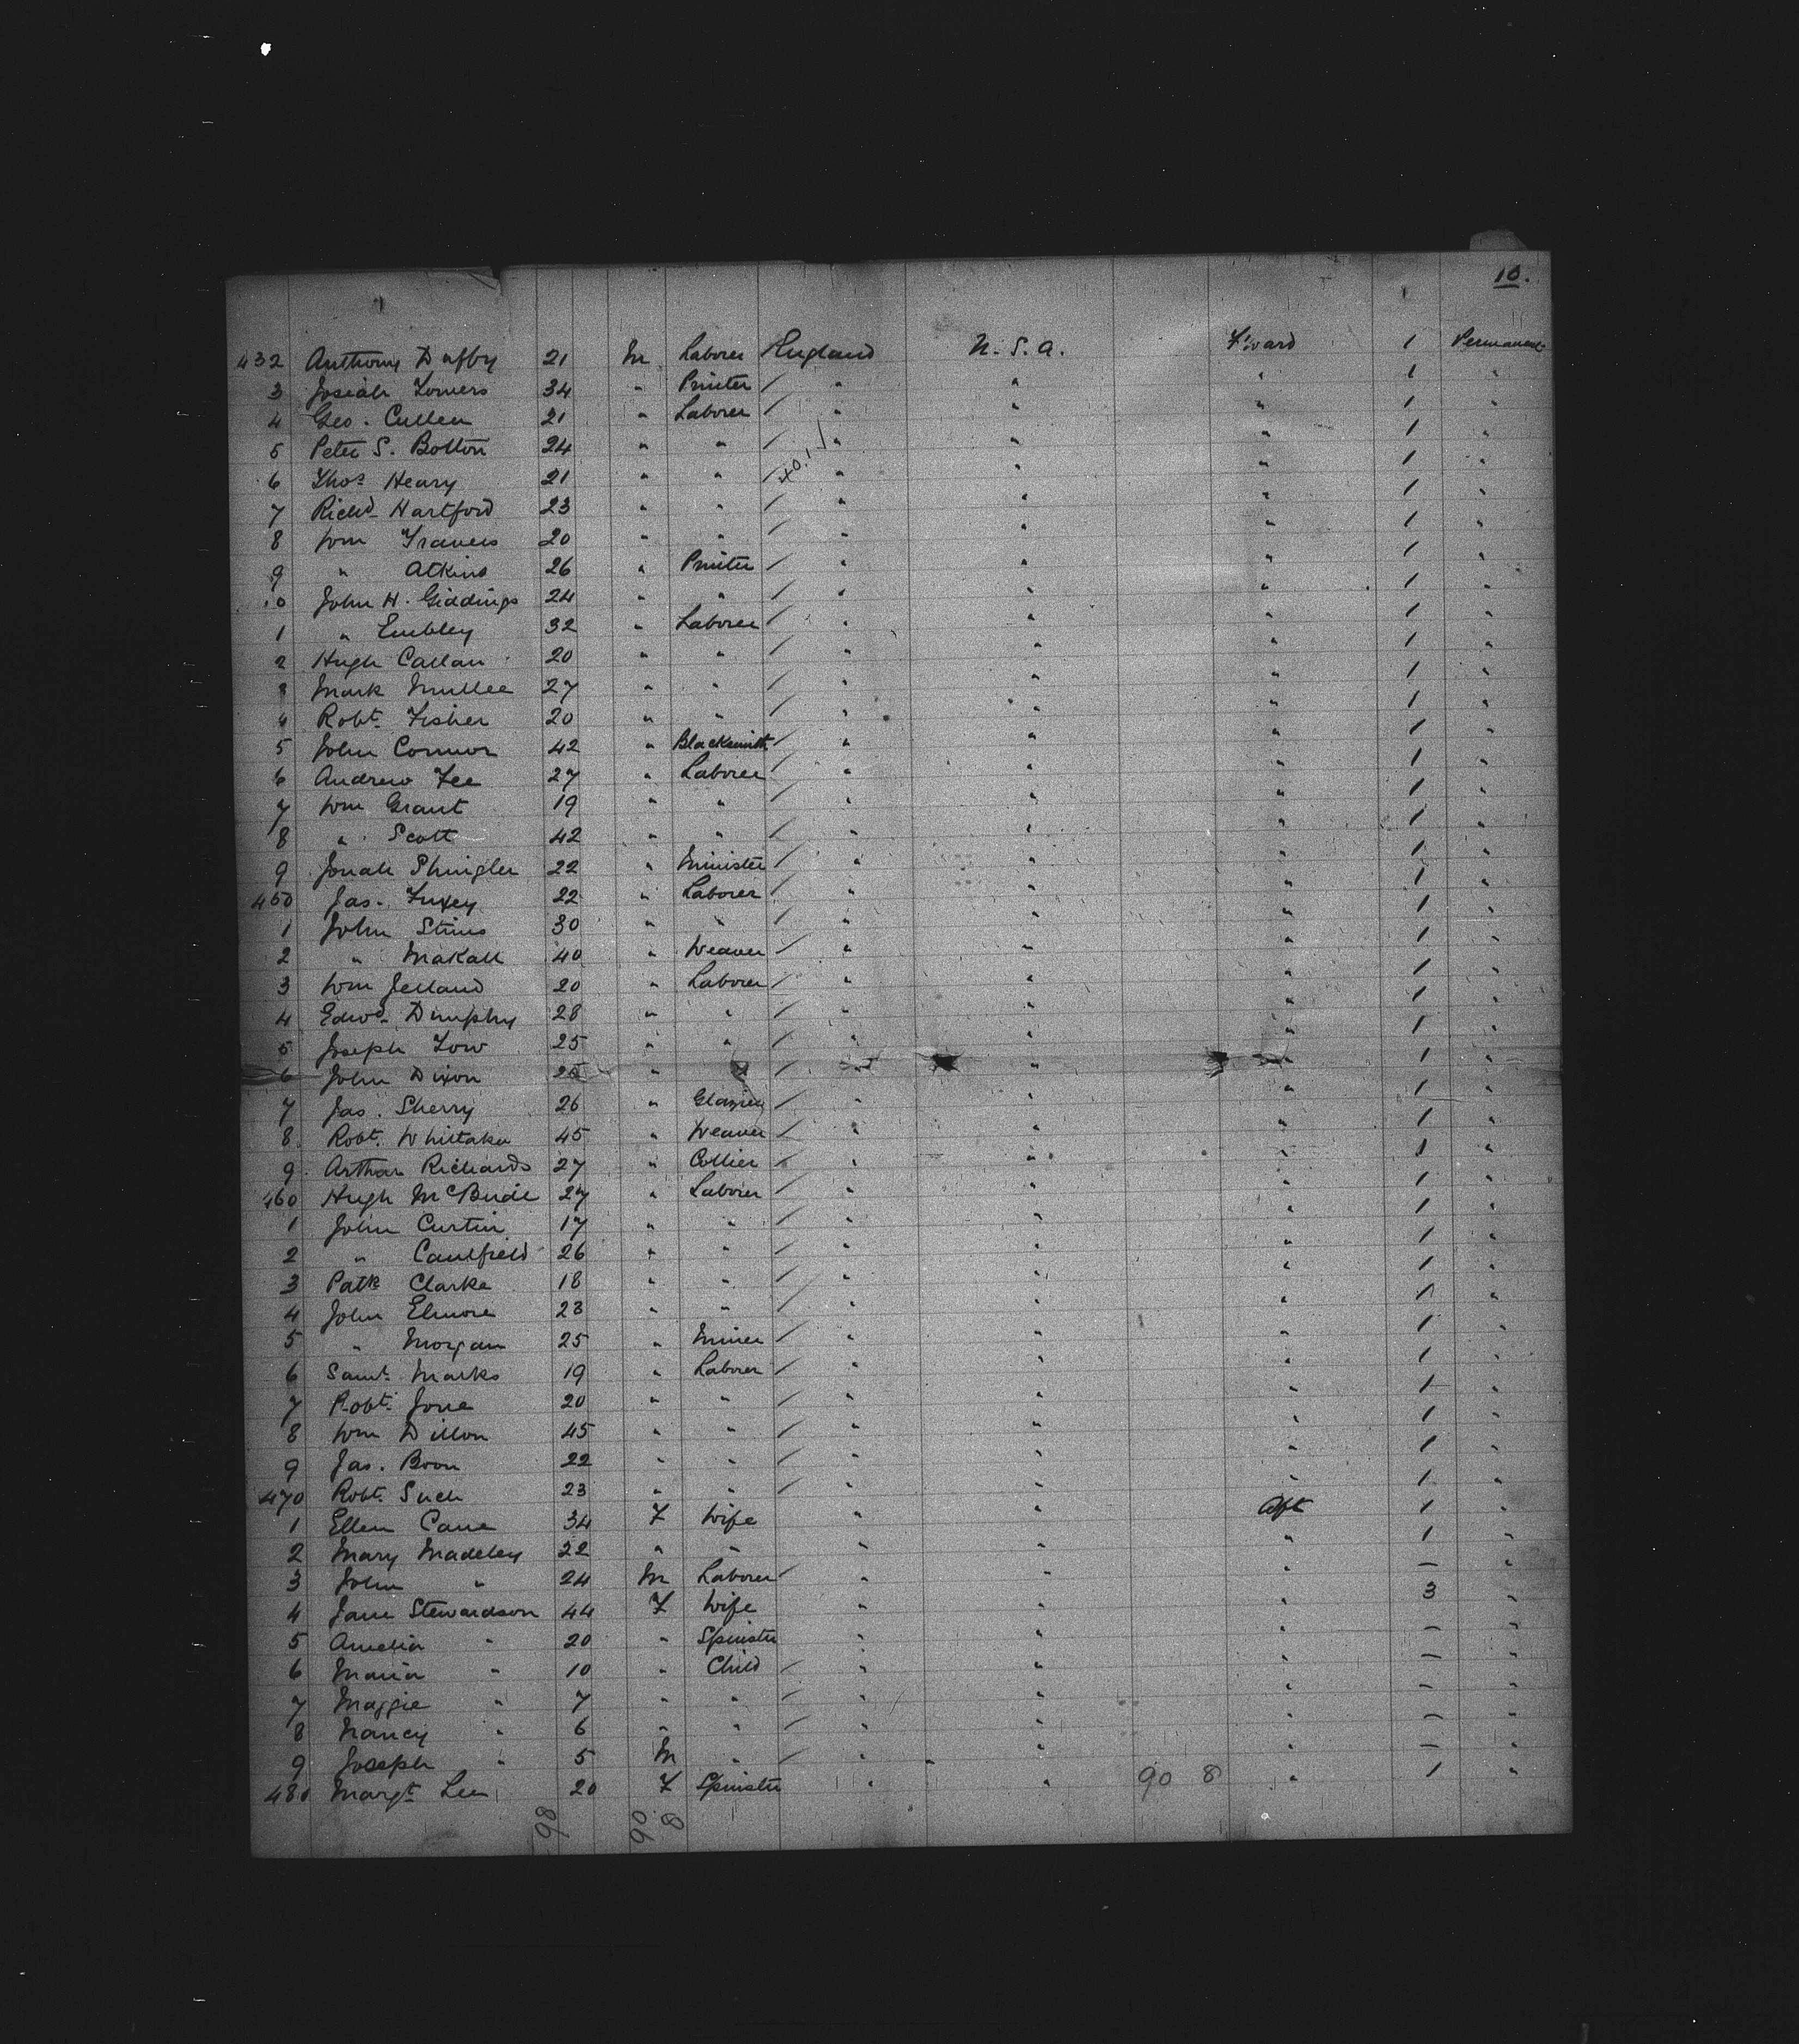 10.
432 Anthony Duffy 21 M Laborer England U.S.A. F'ward 1 Permanent
3 Josiah Somers 34 " Printer / " " " 1 "
4 Geo. Cullen 21 " Laborer / " " " 1 "
5 Peter S. Bolton 24 " " / " " " 1 "
6 Thos Heary 21 " " / " " " 1 "
7 Richd Hartford 23 " " / " " " 1 "
8 Wm Travers 20 " " / " " " 1 "
9 " Atkins 26 " Printer / " " " 1 "
10 John H. Giddings 24 " " / " " " 1 "
1 " Embley 32 " Laborer / " " " 1 "
2 Hugh Callan 20 " " / " " " 1 "
3 Mark Mullee 27 " " / " " " 1 "
4 Robt. Fisher 20 " " / " " " 1 "
5 John Connor 42 " Blacksmith / " " " 1 "
6 Andrew Fee 27 " Laborer / " " " 1 "
7 Wm Grant 19 " " / " " " 1 "
8 " Scott 42 " " / " " " 1 "
9 Jonah Phingler 22 " Minister / " " " 1 "
450 Jas. 22 " Laborer / " " " 1 "
1 John Stims 30 " " / " " " 1 "
2 " Makall 40 " Weaver / " " " 1 "
3 Wm Jelland 20 " Laborer / " " " 1 "
4 Edwd Dimphy 28 " " / " " " 1 "
5 Joseph Low 25 " " / " " " 1 "
6 John Dixon " " / " " " 1 "
7 Jas. Sherry 26 " Glazier / " " " 1 "
8 Robt. Whittaker 45 " Weaver / " " " 1 "
9 Arthur Richards 27 " Collier / " " " 1 "
460 Hugh McBride 27 " Laborer / " " " 1 "
1 John Curtin 17 " " / " " " 1 "
2 " Caulfield 26 " " / " " " 1 "
3 Patk Clarke 18 " " / " " " 1 "
4 John Elmore 23 " " / " " " 1 "
5 " Morgan 25 " Miner / " " " 1 "
6 Saml. Marks 19 " Laborer / " " " 1 "
7 Robt. Jone 20 " " / " " " 1 "
8 Wm Dillon 45 " " / " " " 1 "
9 Jas. Boon 22 " " / " " " 1 "
470 Robt. Such 23 " " / " " " 1 "
1 Ellen Cane 34 F Wife " " Aft 1 "
2 Mary Madeley 22 " " " " " 1 "
3 John " 24 M Laborer / " " " — "
4 Jane Stewardson 44 F Wife " " " 3 "
5 Amelia " 20 " Spinster " " " — "
6 Maria " 10 " Child / " " " — "
7 Maggie " 7 " " / " " " — "
8 Nancy " 6 " " / " " " — "
9 Joseph " 5 M " / " " " — "
480 Margt. Lee 20 F Spinster " " 90 8 " 1 "
98 90 8